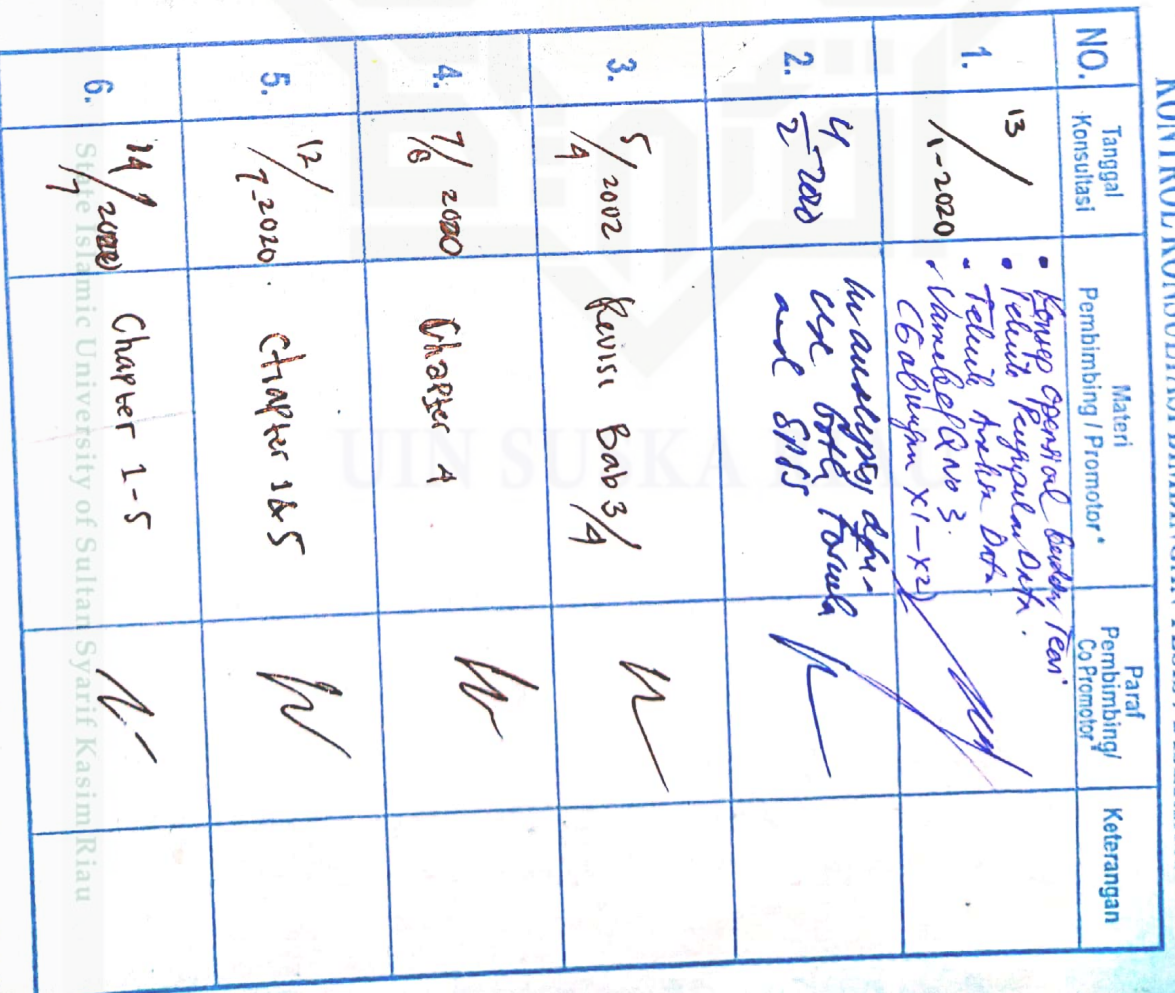 KONTROL KONSULTASI
NO.
Tanggal
Konsultasi
Materi
Pembimbing / Promotor*
Paraf
Pembimbing/
Co Promotor*
Keterangan
1.
13/1-2020
• Konsep operasional
• Teknik Data.
• Teknik Data
• No 3.
(Gabungan X1-X2)
2.
4/2-2020
use both formula
and SPSS
3.
5/4 2002
Revisi Bab 3/4
4.
7/6 2020
Chapter 4
5.
12/7-2020.
Chapter 1&5
6.
14/7 2020
Chapter 1-5
UIN SUSKA
State Islamic University of Sultan Syarif Kasim Riau